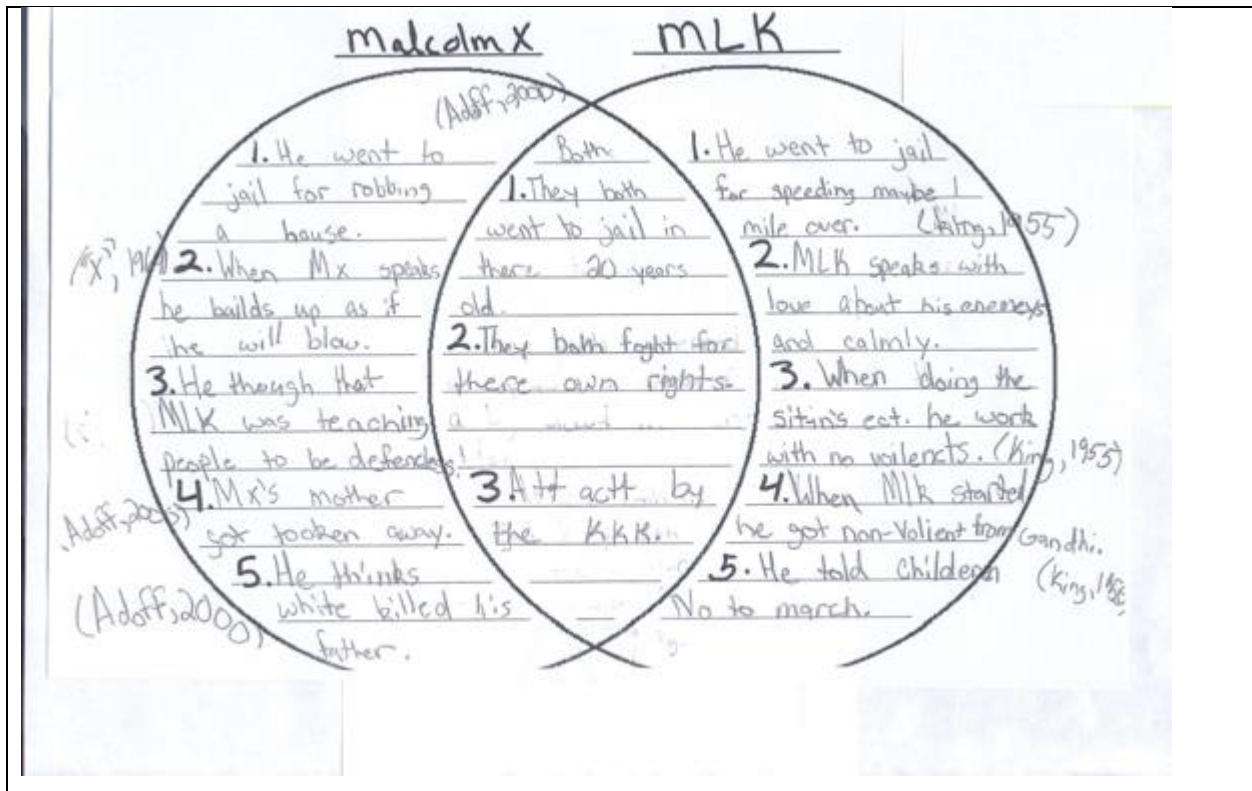 Malcolm X
MLK
(Adoff, 2000)
1. He went to
jail for robbing
a house.
2. When Mx speaks
he builds up as if
he will blow.
3. He though that
MLK was teaching
people to be defendess!
4. Mx's mother
got tooken away.
5. He thinks
white killed his
father.
(Adoff, 2000)
Both
1. They both
went to jail in
there 20 years
old.
2. They both foght for
there own rights.
a
3. Att actt by
the KKK.
1. He went to jail
for speeding maybe 1
mile over. (king, 1955)
2. MLK speaks with
love about his enemeys
and calmly.
3. When doing the
sitin's ect. he work
with no voilencts. (King, 1955)
4. When Mlk started
he got non-Volient from Gandhi.
5. He told childern
No to march.